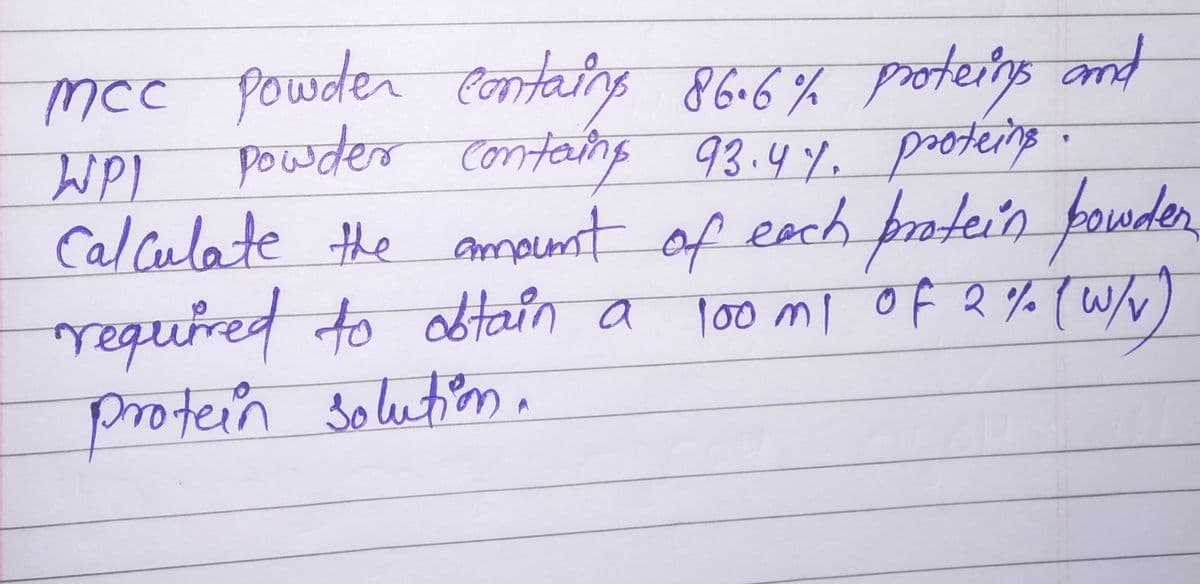 mcc powder contains 86.6% proteins and
WPI powder contains 93.4%. proteins.
Calculate the amount of each protein powder
required to obtain a 100 ml of 2% (w/v)
protein solution.